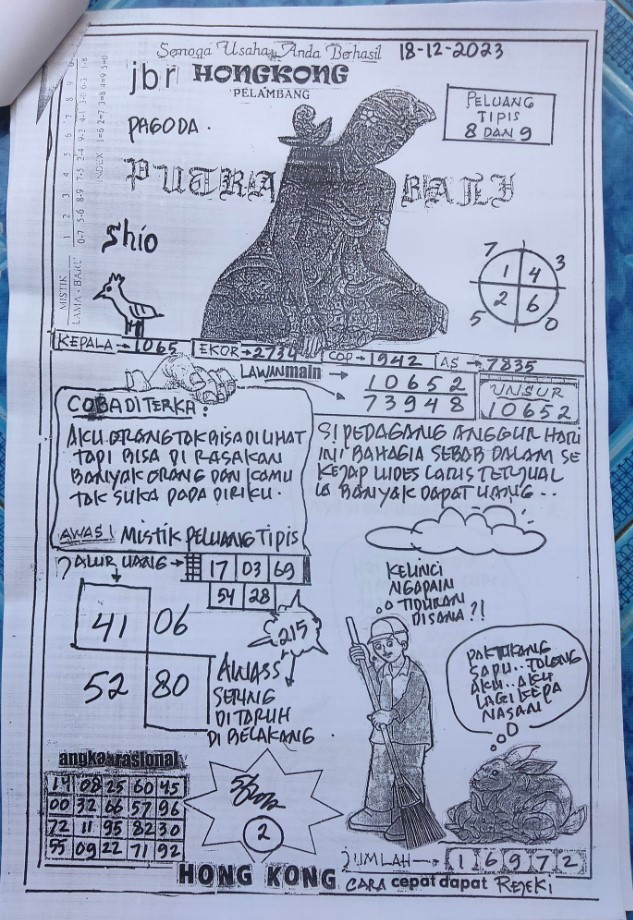 Semoga Usaha Anda Berhasil 18-12-2023
jbr HONGKONG
PELAMBANG
PELUANG
TIPIS
8 DAN 9
PAGODA.
PUTRA BALI
Shio
INDEX 1=6 2=7 3=8 4=9 5=0
MISTIK
LAMA - BARU
7 3
1 4
2 6
5 0
KEPALA → 1065 EKOR → 2734 COP → 1942 AS → 7835
LAWANmain → 10652
73948
UNSUR
10652
COBA DITERKA:
AKU ORANG TAK BISA DILIHAT
TAPI BISA DI RASAKAN
BANYAK ORANG DAN KAMU
TAK SUKA PADA DIRIKU.
SI PEDAGANG ANGGUR HARI
INI BAHAGIA SEBAB DALAM SE
KEJAP LUDES LARIS TERJUAL
IA BANYAK DAPAT UANG..
AWAS! MISTIK PELUANG TIPIS
JALUR UANG → 17 03 69
54 28
41 06
52 80
215
AWASS
SERING
DITARUH
DI BELAKANG.
KELINCI
NGAPAIN
TIDURAN
DISANA?!
PAK TUKANG
SAPU.. TOLONG
AKU.. AKU
LAGI KEPA
NASAN
angka rasional
14 08 25 60 45
00 32 66 57 96
72 11 95 82 30
55 09 22 71 92
2
JUMLAH → 1 6 9 7 2
HONG KONG CARA cepat dapat REJEKI